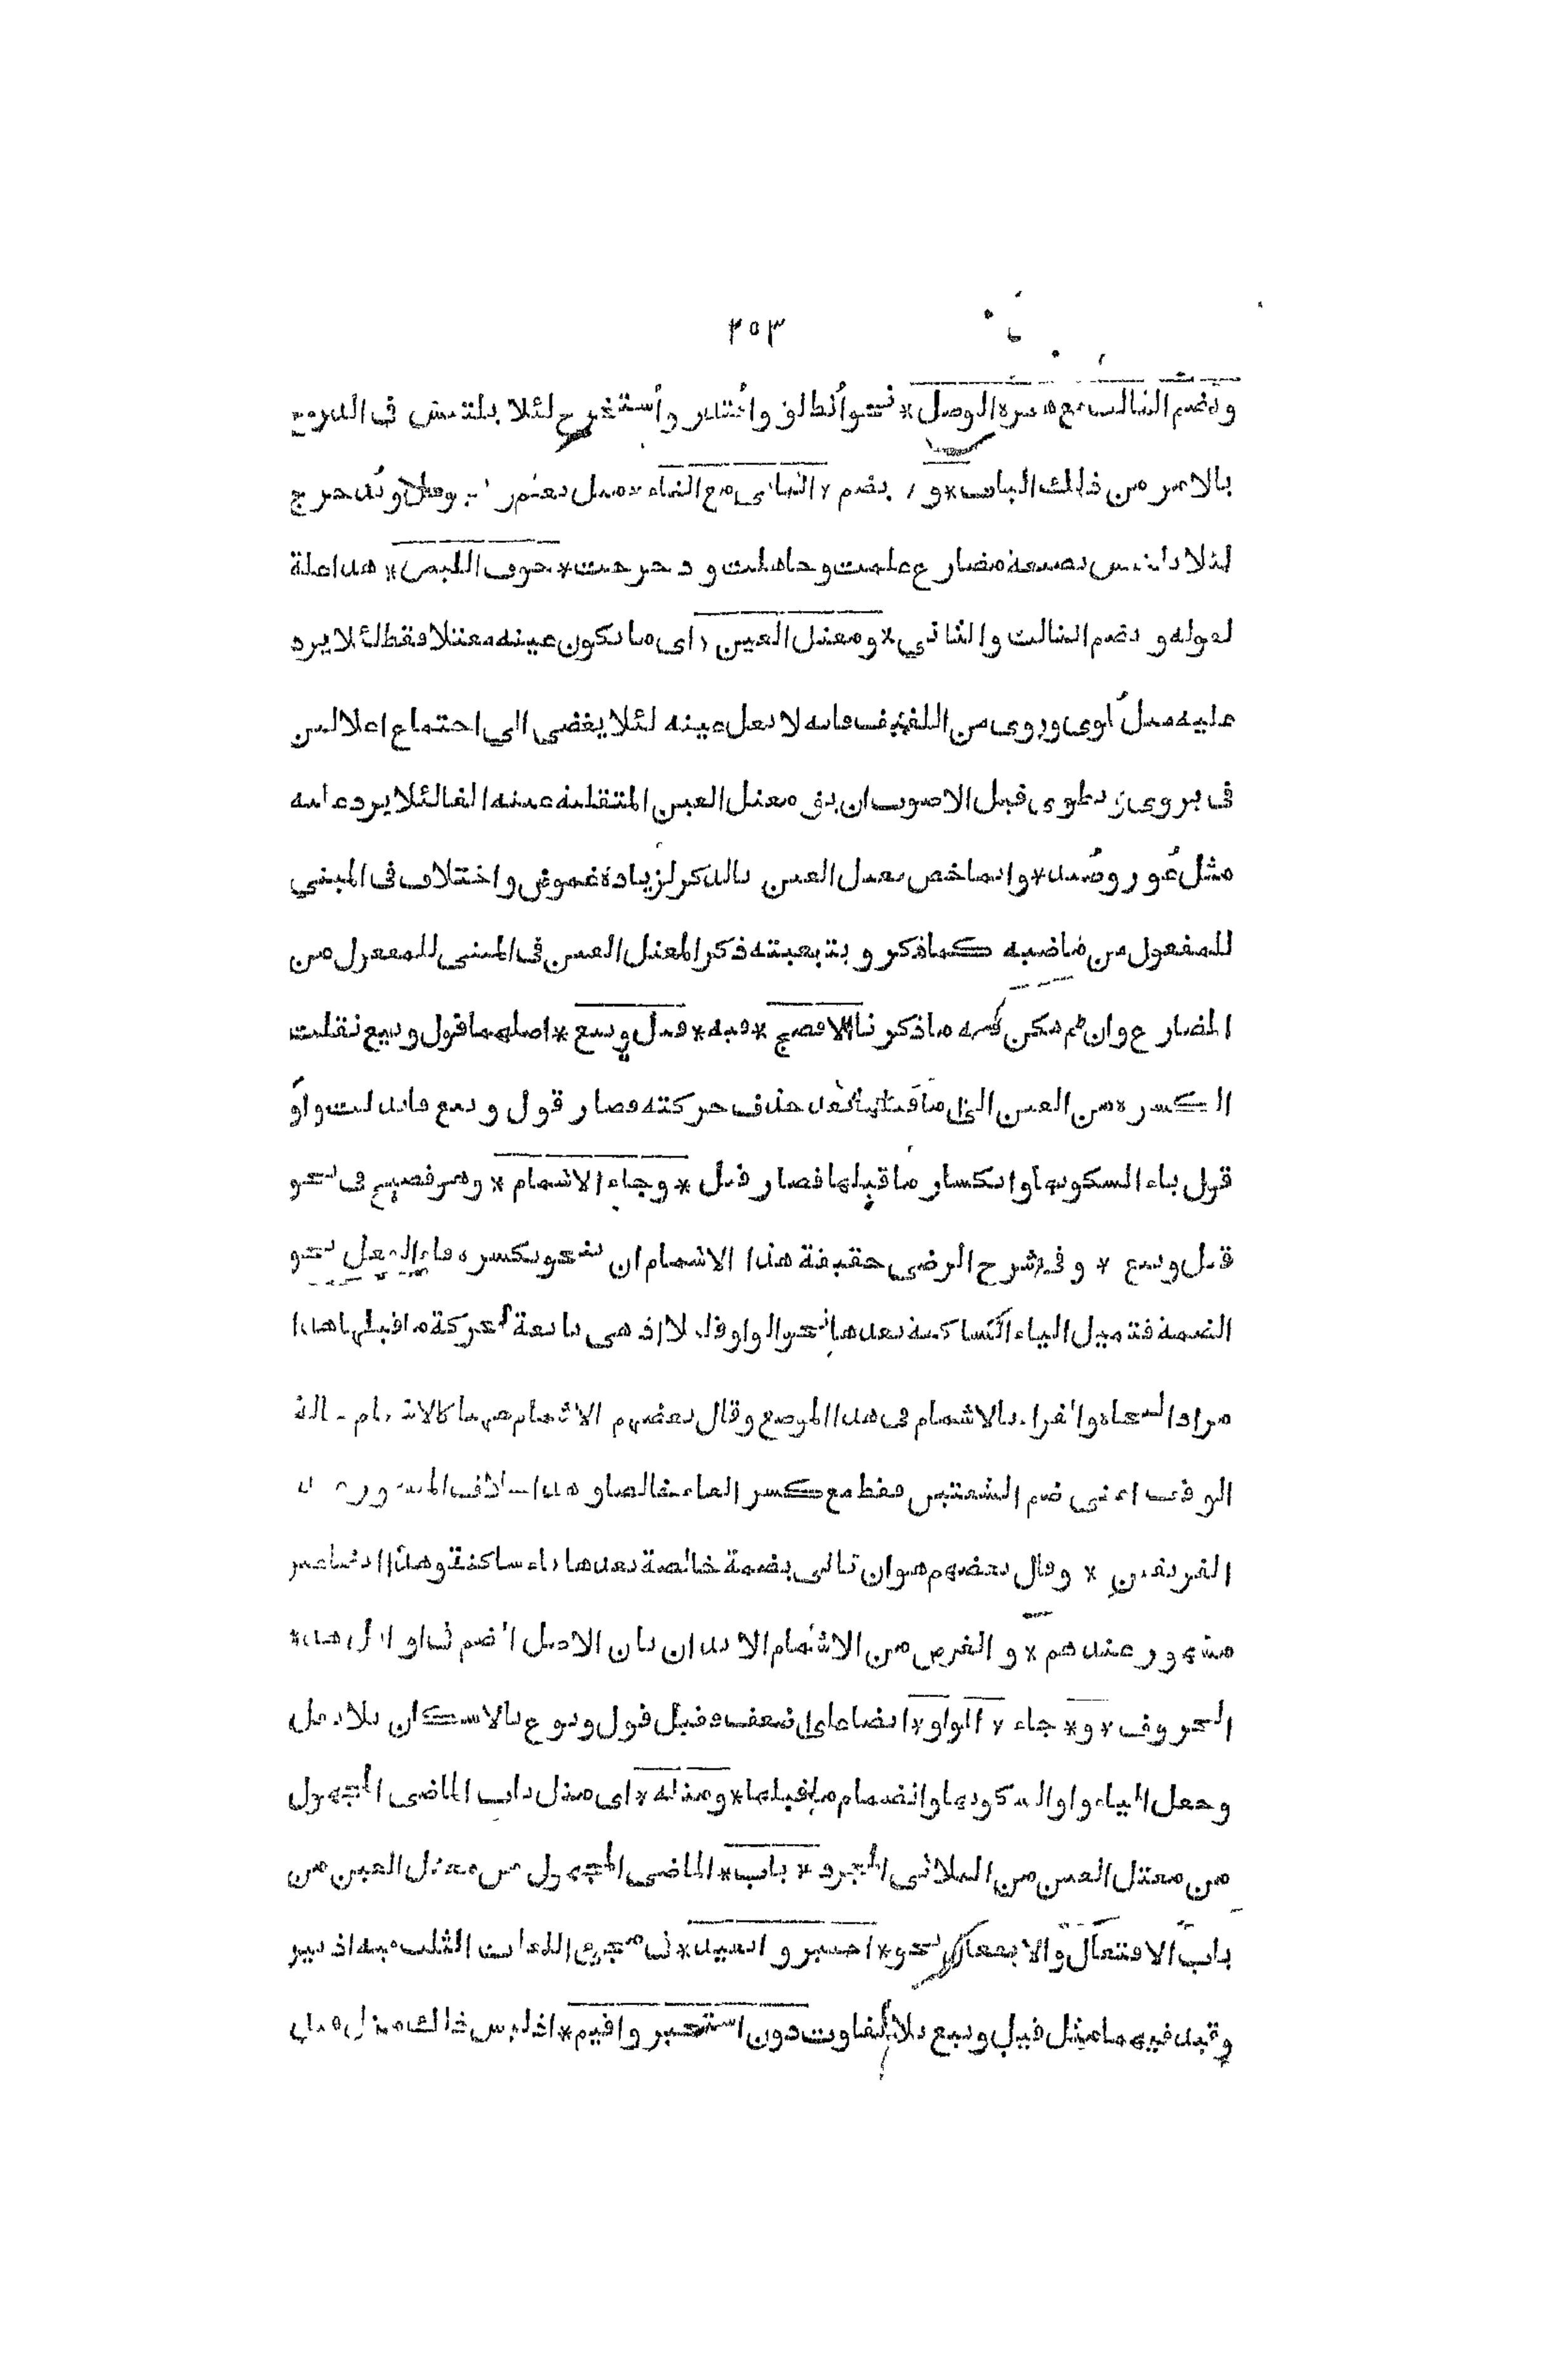 ٣٥٣
ويضم الثالث مع همزة الوصل * نحو أنطلق وأقتدر وأستخرج لئلا يلتبس في الدرج
بالامر من ذلك الباب * و * يضم * الثاني مع التاء * مثل تعلم وتجوهل وتدحرج
لئلا يلتبس بصيغة مضارع علمت وجاهلت ودحرجت * خوف اللبس * هذا علة
لقوله ويضم الثالث والثاني * ومعتل العين * اى ما يكون عينه معتلا فقط لئلا يرد
عليه مثل طوى وروى من اللفيف فانه لا يعل عينه لئلا يفضى الى اجتماع اعلالين
في يروى ويطوى قيل الاصوب ان يق معتل العين المنقلبة عينه الفا لئلا يرد عليه
مثل عُور وصُيد * وانما خص معتل العين بالذكر لزيادة غموض واختلاف في المبني
للمفعول من ماضيه كما ذكر و بتبعيته ذكر المعتل العين في المبنى للمفعول من
المضارع وان لم يكن فيه ما ذكرنا * الافصح * فيه * قيل وبيع * اصلهما قول وبيع نقلت
الكسرة من العين الى ما قبلها بعد حذف حركته فصار قول وبيع فابدلت واو
قول ياء لسكونها وانكسار ما قبلها فصار قيل * وجاء الاشمام * وهو فصيح في نحو
قيل وبيع * وفي شرح الرضى حقيقة هذا الاشمام ان تنحو بكسرة فاء الفعل نحو
الضمة فتميل الياء الساكنة بعدها نحو الواو قليلا اذ هى تابعة لحركة ما قبلها هذا
مراد النحاة والقراء بالاشمام في هذا الموضع وقال بعضهم الاشمام ههنا كالاشمام حالة
الوقف اعنى ضم الشفتين فقط مع كسر الفاء خالصا وهذا خلاف المشهور عند
الفريقين * وقال بعضهم هو ان تأتى بضمة خالصة بعدها ياء ساكنة وهذا ايضا غير
مشهور عندهم * والغرض من الاشمام الايذان بان الاصل الضم في اوائل هذه
الحروف * و * جاء * الواو * ايضا على ضعف فقيل قول وبوع بالاسكان بلا نقل
وجعل الياء واوا لسكونها وانضمام ما قبلها * ومثله * اى مثل باب الماضى المجهول
من معتل العين من الثلاثى المجرد * باب * الماضى المجهول من معتل العين من
باب الافتعال والانفعال نحو * اختير وانقيد * في مجرى اللغات الثلث فيه اذ تير
وقيد فيهما مثل قيل وبيع بلا تفاوت دون استخير واقيم * اذ ليس ذلك مثل قيل